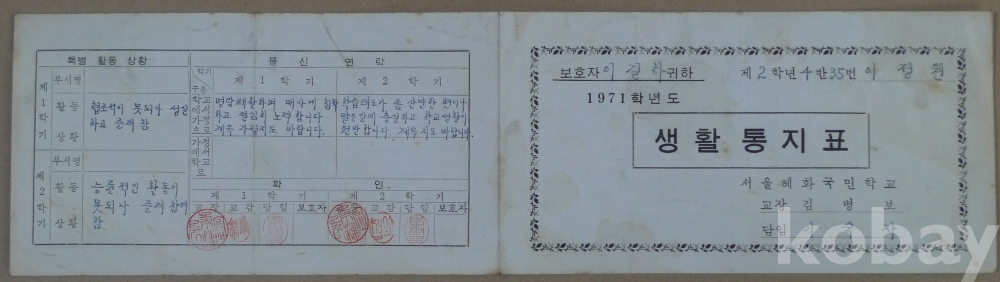 특별 활동 상황
통 신 연 락
제1학기
부서명
활동
상황
협조적이 못되나 성실
하고 즐겨 참
제2학기
부서명
활동
상황
능률적인 활동이
못되나 즐겨 참여
함.
학기
구분
제 1 학 기
제 2 학 기
학교에서 가정으로
명랑쾌활하며 매사에 침착
하고 열심히 노력합니다
계속 가정지도 바랍니다.
학습태도가 좀 산만한 편이나
맡은일에 충실하고 학교생활이
원만합니다. 계속 지도 바랍니다.
가정에서 학교로
확 인
제 1 학 기
제 2 학 기
교장 교감 담임 보호자
교장 교감 담임 보호자
보호자 이 길 하 귀하
제 2 학년 4 반 35 번 이 정 원
1971 학년도
생활통지표
서울혜화국민학교
교장 김 병 보
담임
kobay